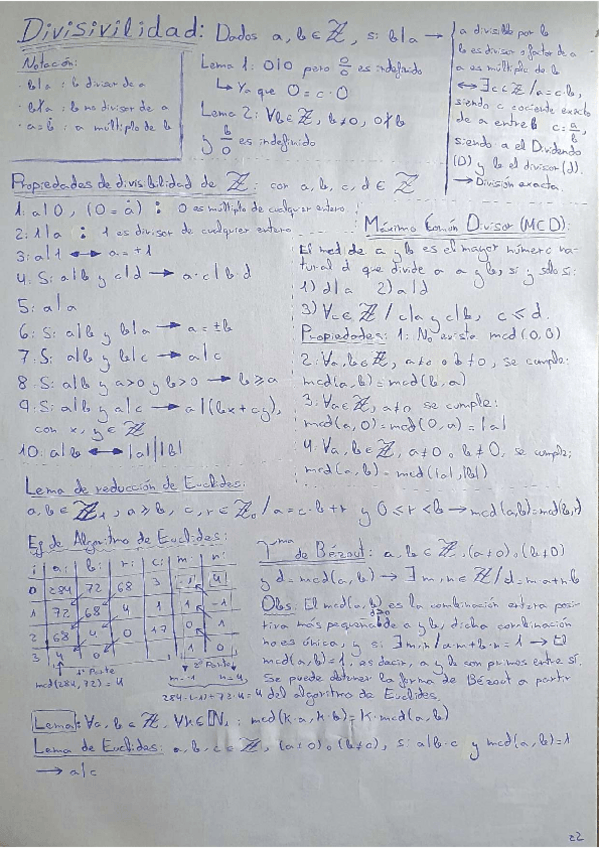 Divisivilidad: Dados a, b ∈ ℤ, si b|a →
a divisible por b
b es divisor o factor de a
a es múltiplo de b
↔ ∃c∈ℤ / a = c·b,
siendo c cociente exacto
de a entre b c = a/b,
siendo a el Dividendo
(D) y b el divisor (d).
→ División exacta
Notación:
· b|a : b divisor de a
· b∤a : b no divisor de a
· a = ḃ : a múltiplo de b
Lema 1: 0|0 pero 0/0 es indefinido
↳ Ya que 0 = c·0
Lema 2: ∀b∈ℤ, b≠0, 0∤b
y b/0 es indefinido
Propiedades de divisibilidad de ℤ: con a, b, c, d ∈ ℤ
1: a|0, (0 = ȧ) : 0 es múltiplo de cualquier entero
2: 1|a : 1 es divisor de cualquier entero
3: a|1 ↔ a = ±1
4: Si a|b y c|d → a·c|b·d
5: a|a
6: Si a|b y b|a → a = ±b
7: Si a|b y b|c → a|c
8: Si a|b y a>0 y b>0 → b ≥ a
9: Si a|b y a|c → a|(bx+cy),
con x, y ∈ ℤ
10: a|b ↔ |a|||b|
Máximo Común Divisor (MCD):
El mcd de a y b es el mayor número na-
tural d que divide a a y b, si y sólo si:
1) d|a 2) a|d
3) ∀c∈ℤ / c|a y c|b, c ≤ d.
Propiedades: 1: No existe mcd(0,0)
2: ∀a,b∈ℤ, a≠0 o b≠0, se cumple:
mcd(a,b) = mcd(b,a)
3: ∀a∈ℤ, a≠0 se cumple:
mcd(a,0) = mcd(0,a) = |a|
4: ∀a,b∈ℤ, a≠0 o b≠0, se cumple:
mcd(a,b) = mcd(|a|,|b|)
Lema de reducción de Euclides:
a, b ∈ ℤ₁, a ≥ b, c, r ∈ ℤ₀ / a = c·b + r y 0 ≤ r < b → mcd(a,b) = mcd(b,r)
Ej de Algoritmo de Euclides:
i a: b: r: c: m: n:
0 284 72 68 3 -1 4
1 72 68 4 1 1 -1
2 68 4 0 17 0 1
3 4 0 1 0
1ª Parte 2ª Parte
mcd(284,72) = 4 m=-1 n=4
284·(-1)+72·4=4 del algoritmo de Euclides.
Tma de Bézout: a, b ∈ ℤ, (a≠0) o (b≠0)
y d = mcd(a,b) → ∃m,n∈ℤ / d = ma+nb
Obs: El mcd(a,b) es la combinación entera posi-
tiva más pequeña de a y b, dicha combinación
no es única, y si ∃m,n / a·m+b·n = 1 → El
mcd(a,b) = 1, es decir, a y b son primos entre sí.
Se puede obtener la forma de Bézout a partir
Lema: ∀a,b∈ℤ, ∀k∈ℕ₁ : mcd(k·a, k·b) = k·mcd(a,b)
Lema de Euclidas: a, b, c ∈ ℤ, (a≠0) o (b≠0), si a|b·c y mcd(a,b)=1
→ a|c
22